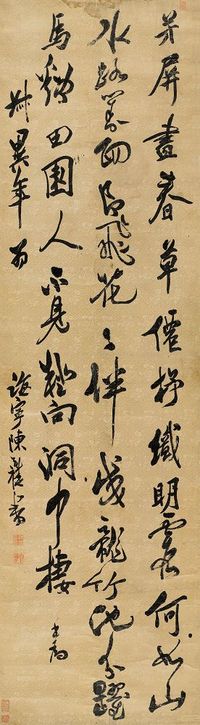 芳屏畫春草僊杼織明霞何如山
水路對面即飛花〻伴成龍竹池分躍
馬谿田園人不見疑向洞中棲 書為
異年翁
海寧陳奕禧